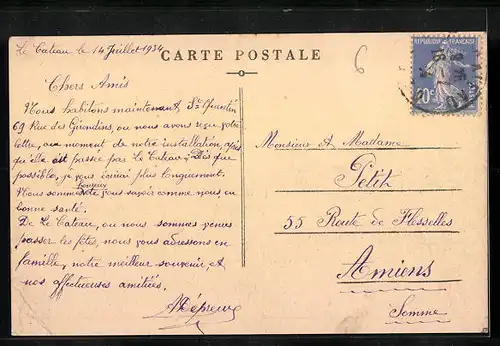 Le Cateau le 14 Juillet 1934
CARTE POSTALE
6
REPUBLIQUE FRANÇAISE
20c
Chers Amis
Nous habitons maintenant, St Quentin
69 Rue des Girondins, ou nous avons reçu votre
lettre, au moment de notre installation, après
qu'elle ait passée par Le Cateau. Dès que
possible, je vous écrirai plus longuement.
Nous sommes heureux de vous savoir comme nous, en
bonne santé.
De Le Cateau, ou nous sommes venus
passer les fêtes, nous vous adressons en
famille, notre meilleur souvenir, et
nos affectueuses amitiées.
Monsieur et Madame
Petit
55 Route de Flesselles
Amiens
Somme